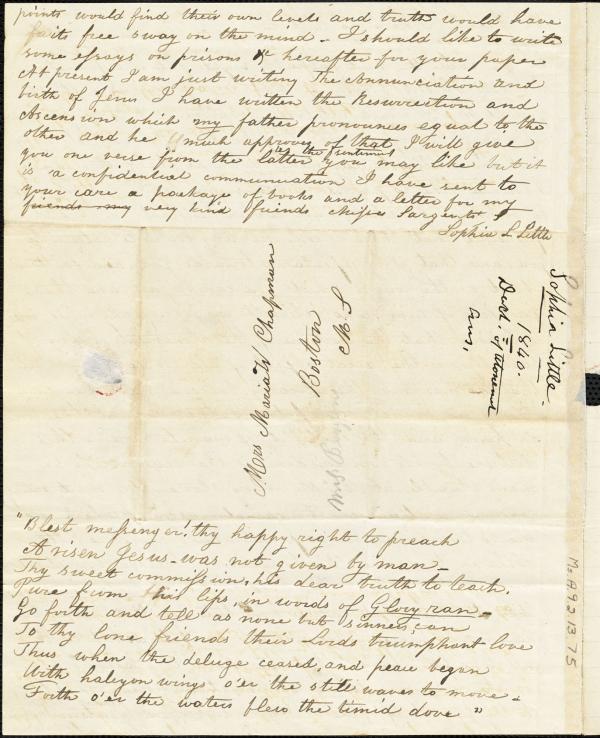 points would find their own levels and truth would have
its free sway on the mind - I should like to write
some essays on prisons &c hereafter for your paper
At present I am just writing The Annunciation and
birth of Jesus I have written the Resurrection and
Ascension which my father pronounces equal to the
other and he much approves of that I will give
you one verse from the latter as the sentiment you may like but it
is a confidential communication I have sent to
your care a package of books and a letter for my
friends my very kind friends Sargent
Sophia L Little
Mrs Maria W Chapman
Boston
M S
Sophia Little -
1840.
Decl. of
"Blest messenger! thy happy right to preach
A risen Jesus - was not given by man -
Thy sweet commission, his dear truth to teach.
Pure from his lips, in words of Glory ran -
Go forth and tell as none but sinners, can
To thy lone friends their Lords triumphant love
Thus when the deluge ceased, and peace began
With halcyon wing o'er the still waves to move -
Forth o'er the waters flew the timid dove "
Ms A.9.2.13.75